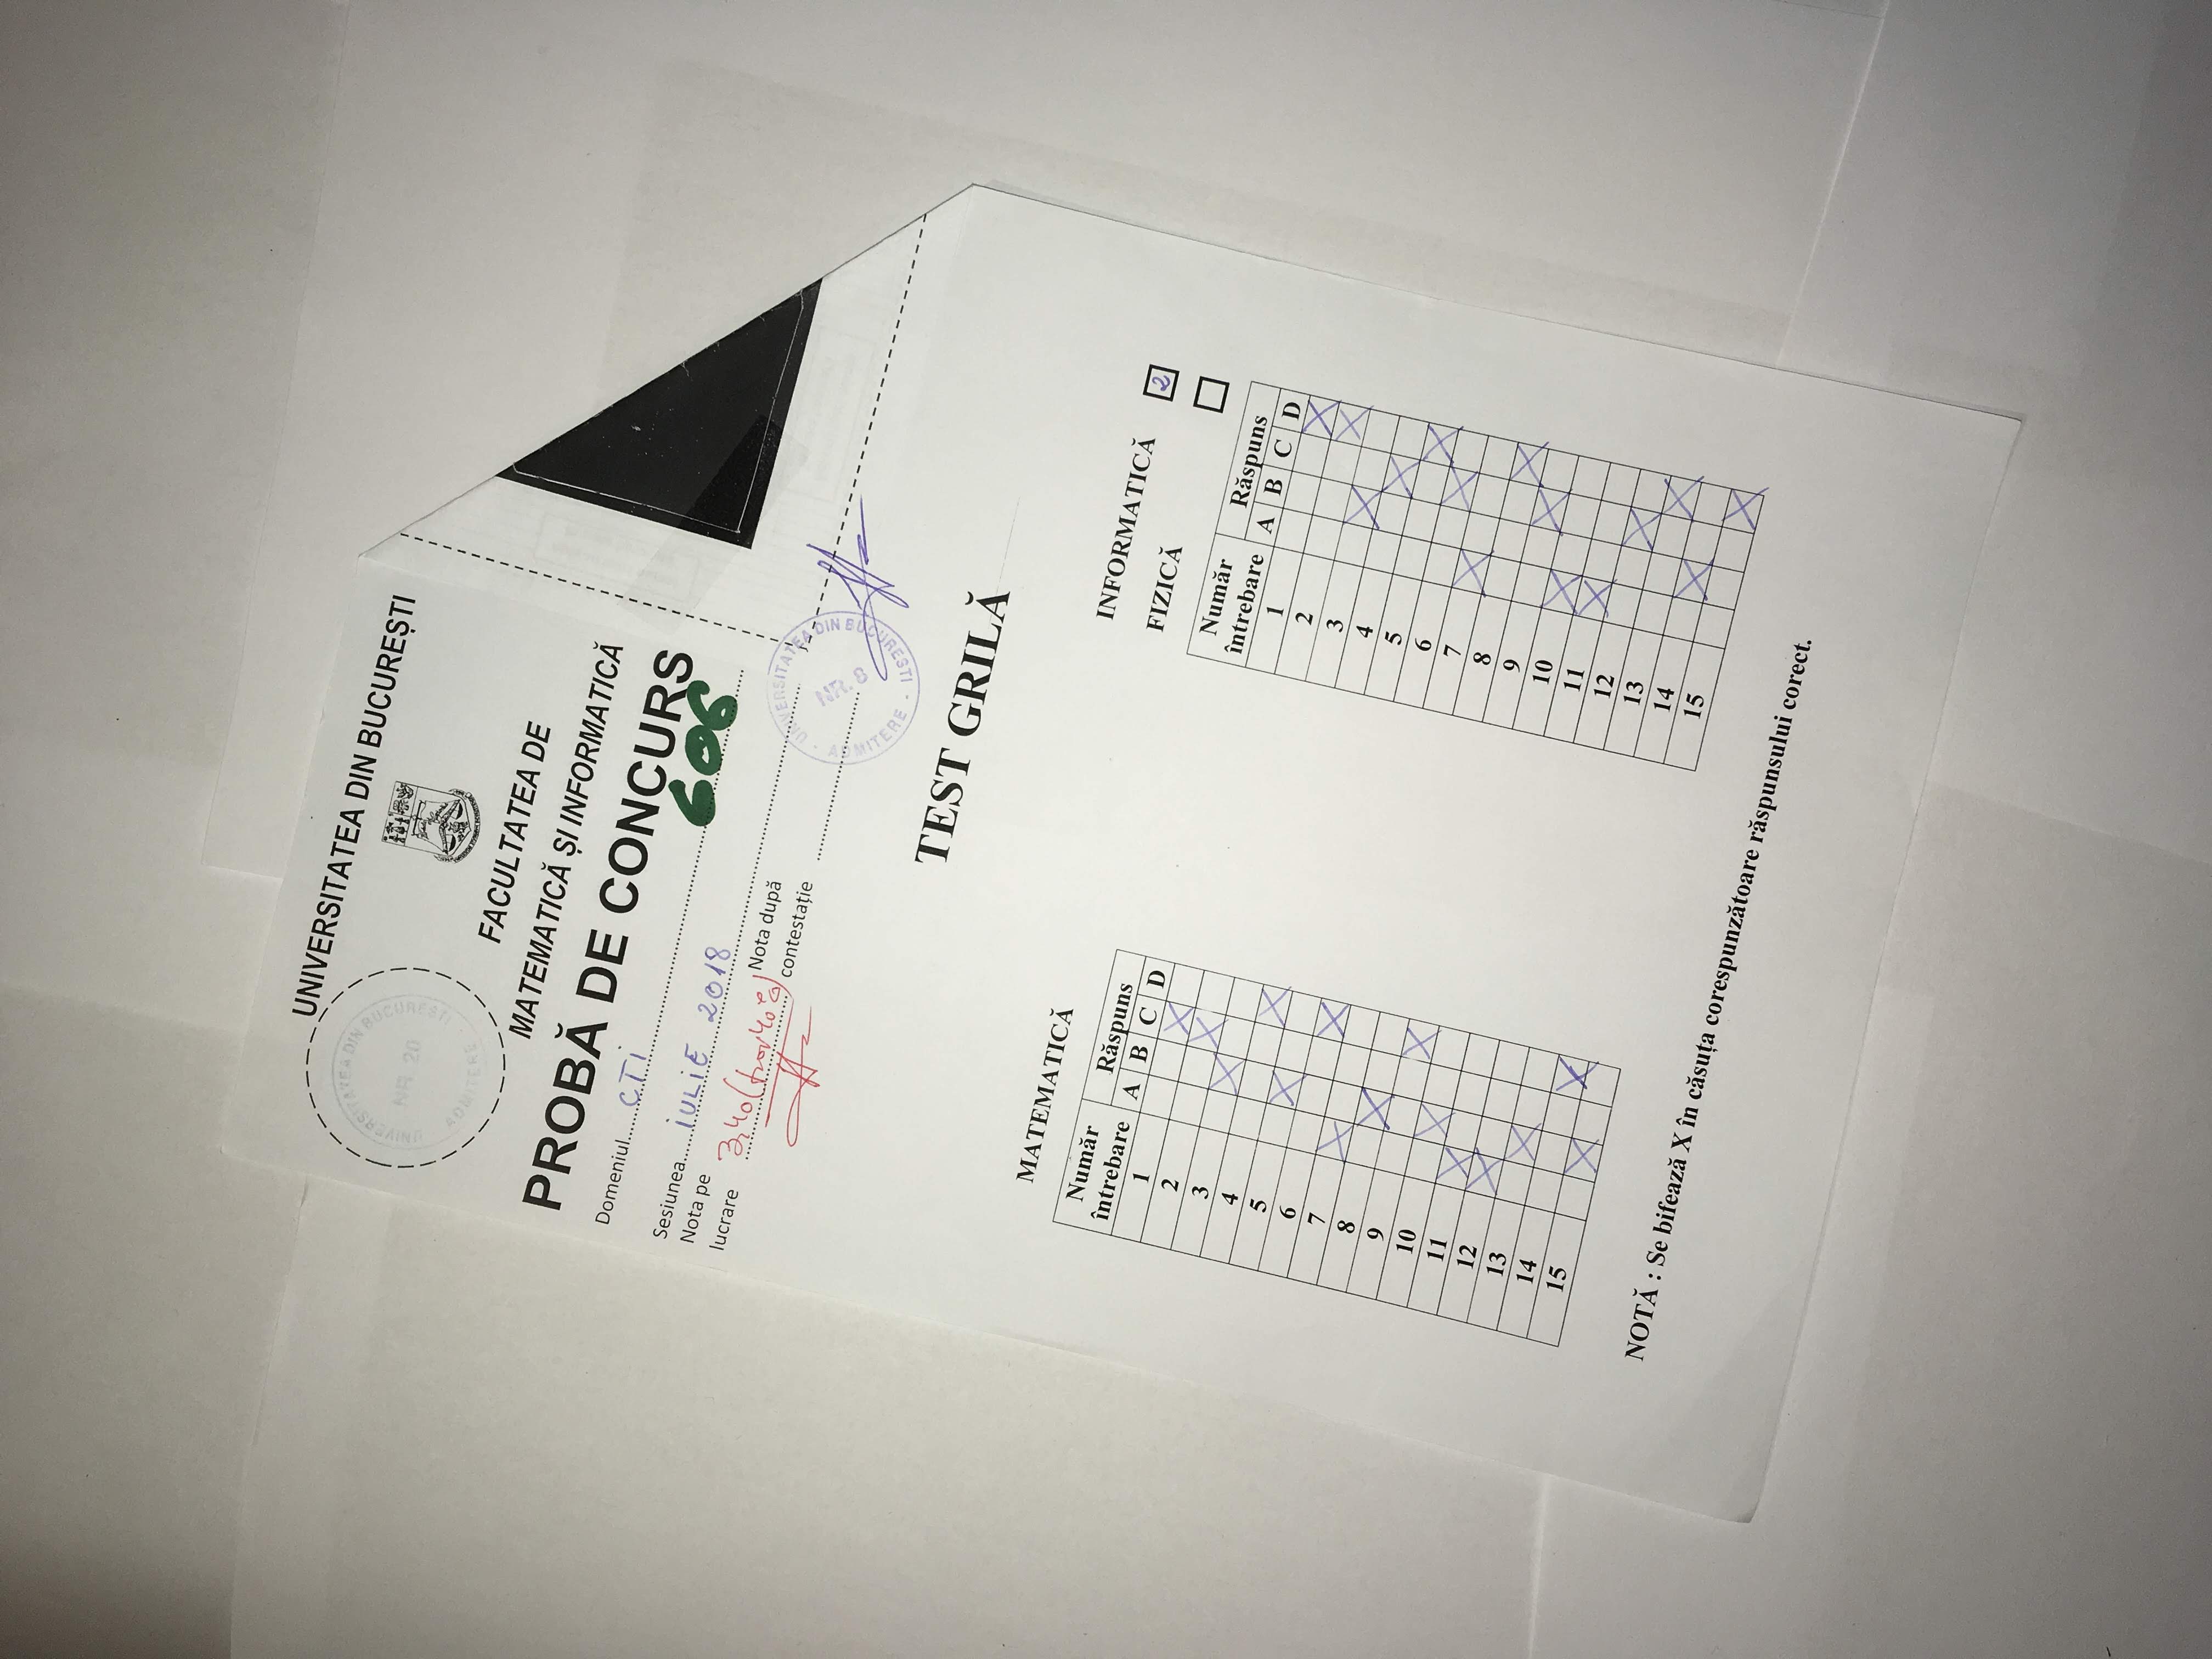 UNIVERSITATEA DIN BUCUREȘTI
UNIVERSITATEA DIN BUCUREȘTI
NR 20
ADMITERE
FACULTATEA DE
MATEMATICĂ ȘI INFORMATICĂ
PROBĂ DE CONCURS
Domeniul CTI
606
Sesiunea IULIE 2018
Nota pe lucrare 3,40 (trei 40%)
Nota după contestație
UNIVERSITATEA DIN BUCUREȘTI
NR. 8
ADMITERE
TEST GRILĂ
MATEMATICĂ
Număr întrebare Răspuns
A B C D
1 X
2 X
3 X
4 X
5 X
6 X
7 X
8 X
9 X
10 X
11 X
12 X
13 X
14 X
15 X
INFORMATICĂ 2
FIZICĂ
Număr întrebare Răspuns
A B C D
1 X
2 X
3 X
4 X
5 X
6 X
7 X
8 X
9 X
10 X
11 X
12 X
13 X
14 X
15 X
NOTĂ : Se bifează X în căsuța corespunzătoare răspunsului corect.